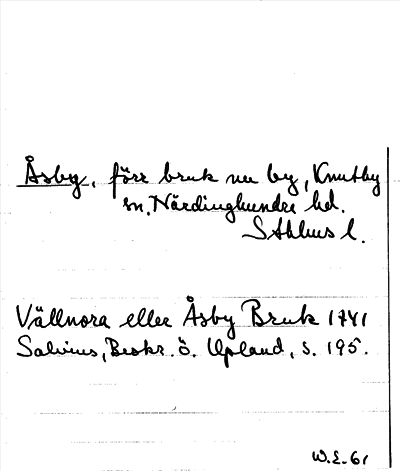 Åsby, förr bruk nu by, Knutby
sn, Närdinghundra hd.
Sthlms l.
Vällnora eller Åsby Bruk 1741
Salvius, Beskr. ö. Upland, s. 195.
W.E. 61